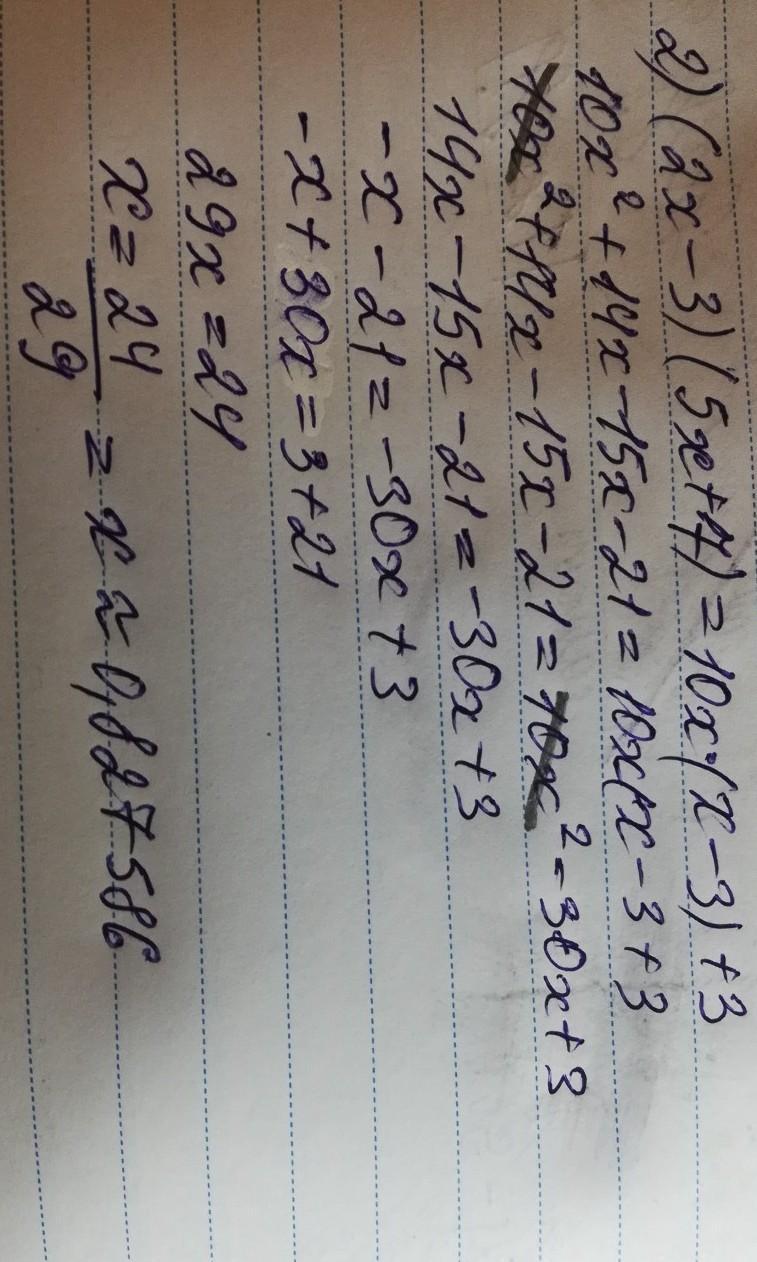 2) (2x-3)(5x+7)=10x·(x-3)+3
10x²+14x-15x-21=10x(x-3+3
10x²+14x-15x-21=10x²-30x+3
14x-15x-21=-30x+3
-x-21=-30x+3
-x+30x=3+21
29x=24
x=24/29=x≈0,827586